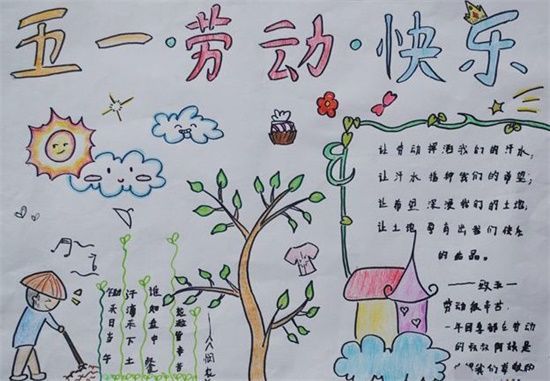 五一·劳动·快乐
让劳动挥洒我们的汗水,
让汗水播种我们的希望,
让希望深浸我们的土地,
让土地孕育出我们快乐
的品。
——致五一
劳动很辛苦
一年四季都在劳动
的叔叔阿姨是
我们尊敬的
锄禾日当午
汗滴禾下土
谁知盘中餐
粒粒皆辛苦
——《悯农